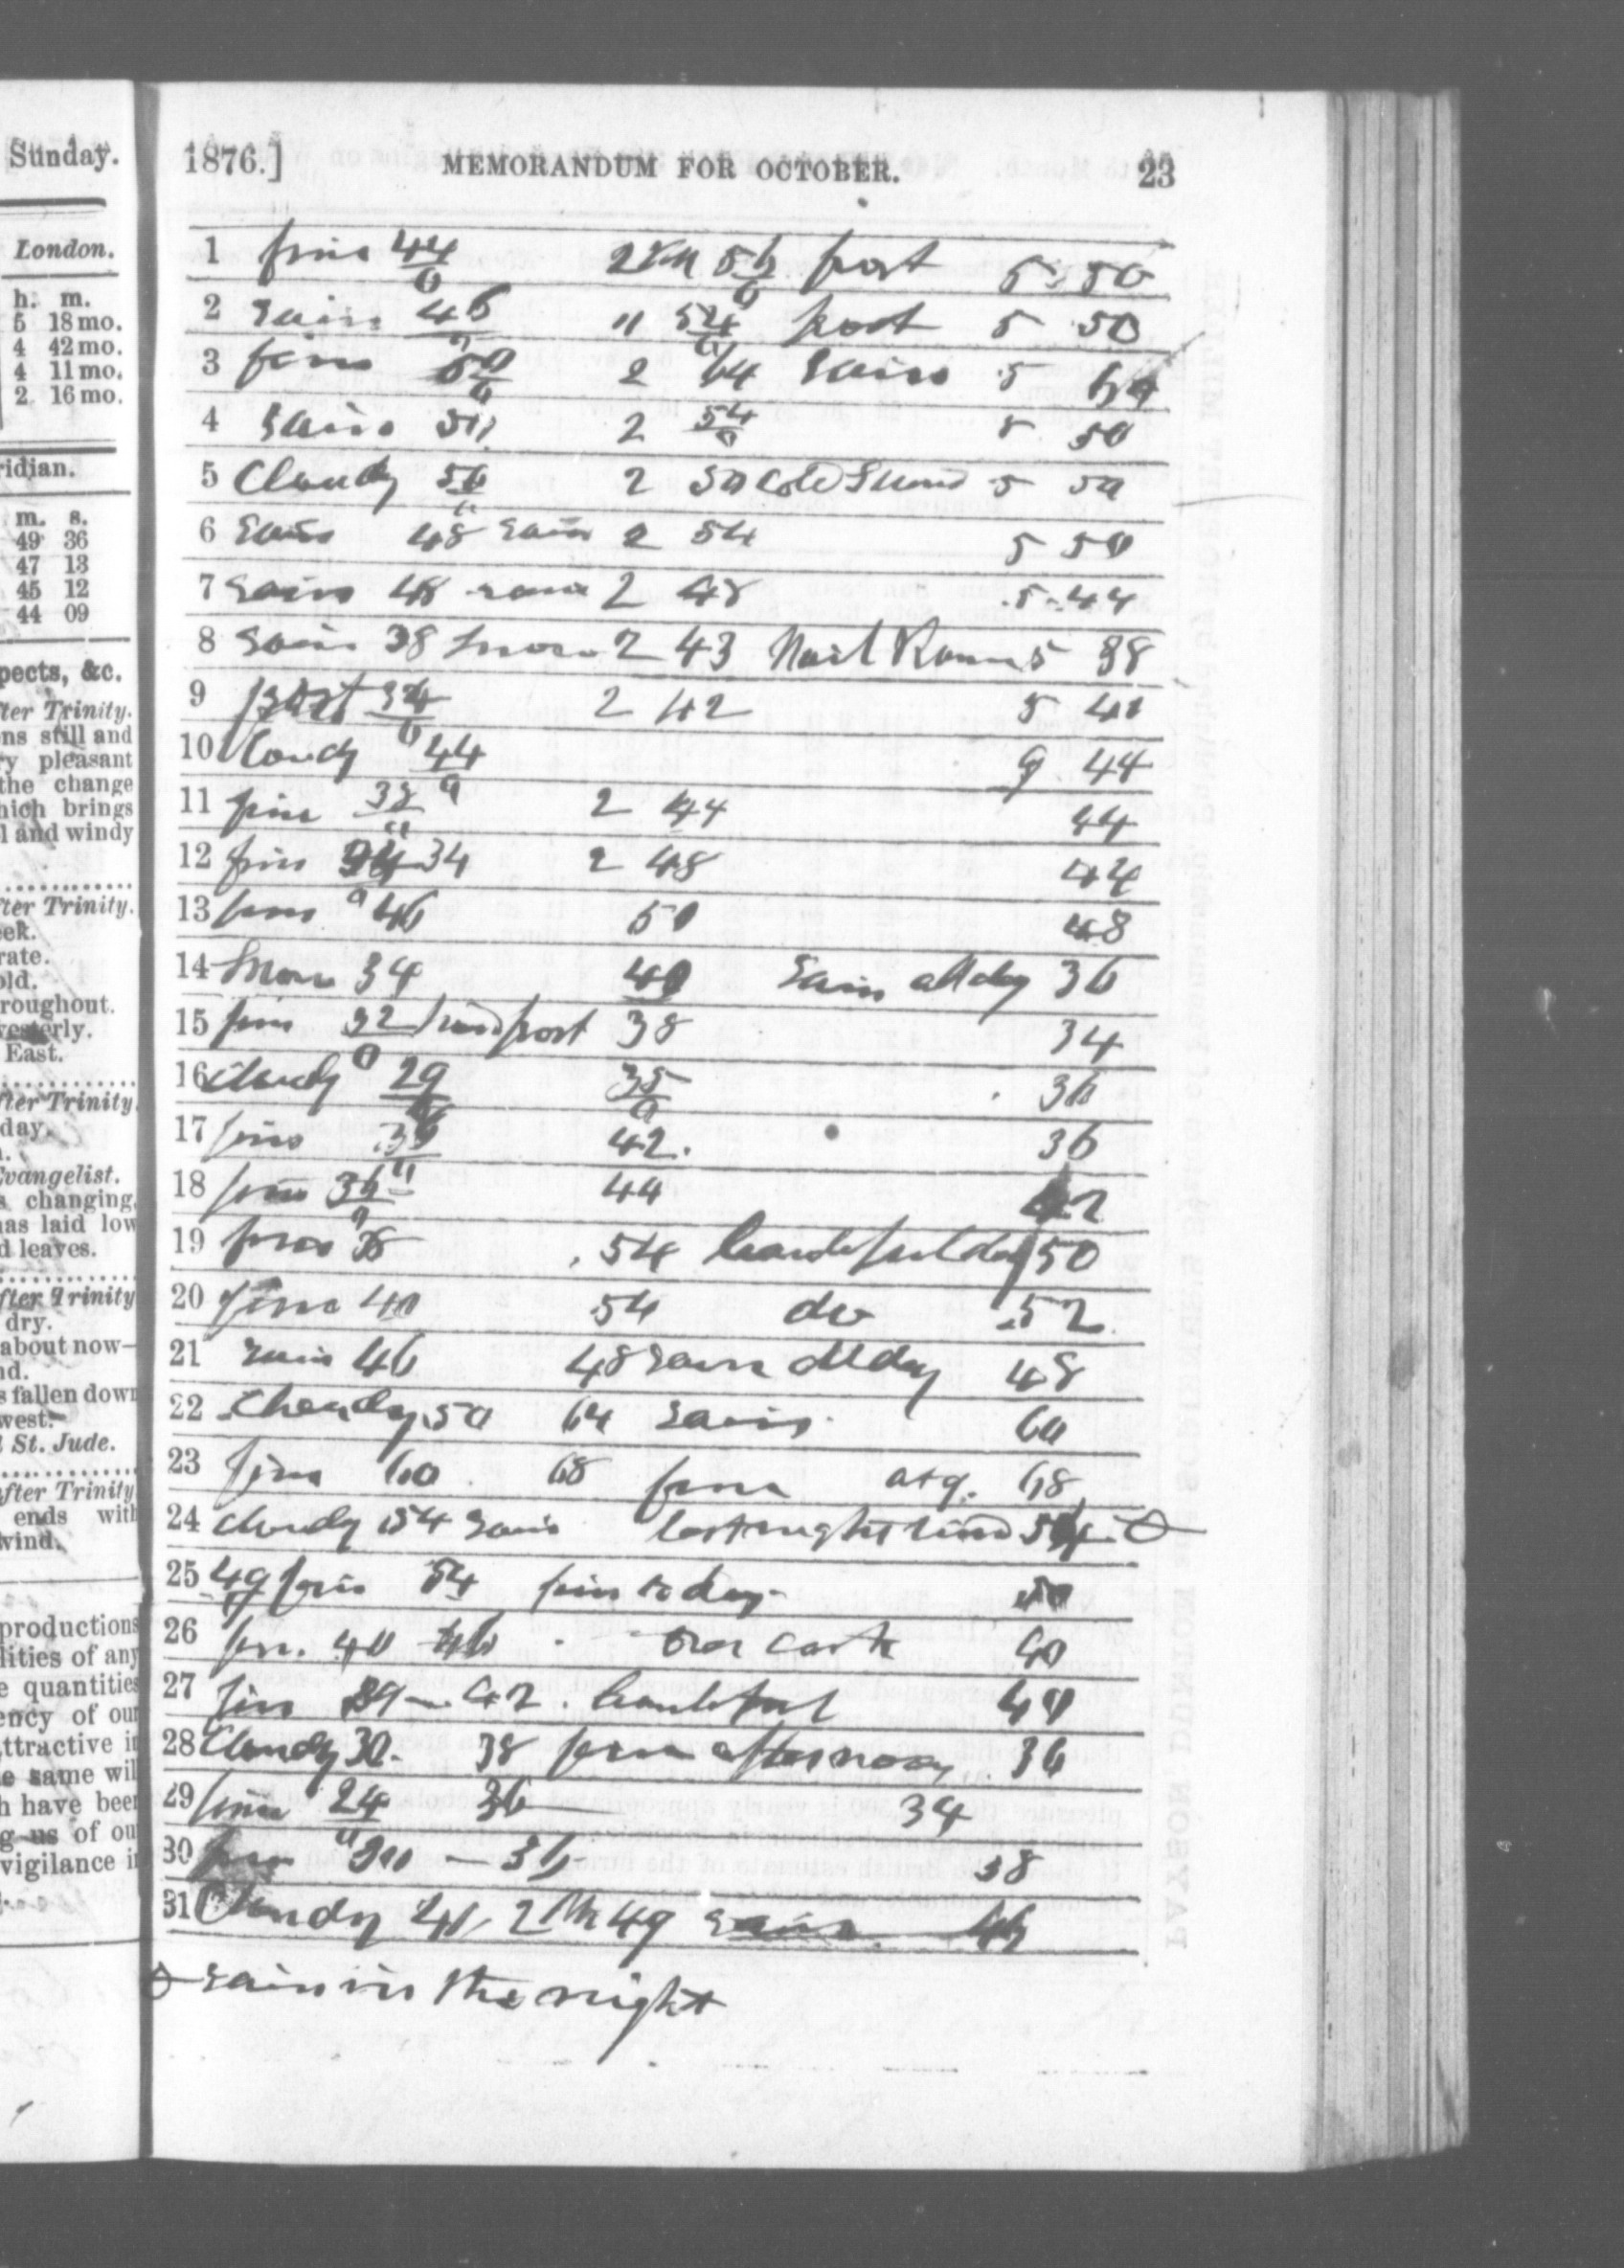 Sunday.
London.
h. m.
5 18 mo.
4 42 mo.
4 11 mo.
2 16 mo.
ridian.
m. s.
49 36
47 13
45 12
44 09
pects, &c.
fter Trinity.
ns still and
ry pleasant
the change
hich brings
l and windy
fter Trinity.
eek.
rate.
old.
roughout.
vesterly.
East.
fter Trinity
day.
Evangelist.
s changing,
has laid low
d leaves.
fter Trinity
dry.
about now—
nd.
s fallen down
west.
St. Jude.
fter Trinity
ends with
wind.
productions
lities of any
e quantities
ency of our
ttractive in
e same wil
h have been
g us of ou
vigilance i
1876.] MEMORANDUM FOR OCTOBER. 23
1 fine 44 56 frost 5 50
2 Rain 46 " 54 frost 5 50
3 fine 50 2 64 Rain 5 60
4 Rain 50 2 54 5 50
5 Cloudy 56 2 50 Cold 5 50
6 Rain 48 rain 2 54 5 50
7 Rain 48 rain 2 48 5 44
8 Rain 38 Snow 2 43 5 38
9 frost 34 2 42 5 40
10 Cloudy 44 9 44
11 fine 38 2 44 44
12 fine 34 2 48 44
13 fine 46 50 48
14 Snow 34 40 Rain all day 36
15 fine 32 hard frost 38 34
16 Cloudy 29 35 36
17 fine 36 42 36
18 fine 36 44 42
19 fine 38 54 beautiful day 50
20 fine 40 54 do 52
21 Rain 46 48 Rain all day 48
22 Cloudy 50 64 Rain 60
23 fine 60 68 fine at 9. 68
24 Cloudy 54 Rain last night wind 54
25 49 fine 54 fine to day 50
26 fine 40 46 over cast 40
27 fine 39 42. beautiful 40
28 Cloudy 30 - 38 fine afternoon 36
29 fine 24 36 34
30 fine 30 - 36 38
31 Cloudy 40 2 49 Rain 46
Rain in the night